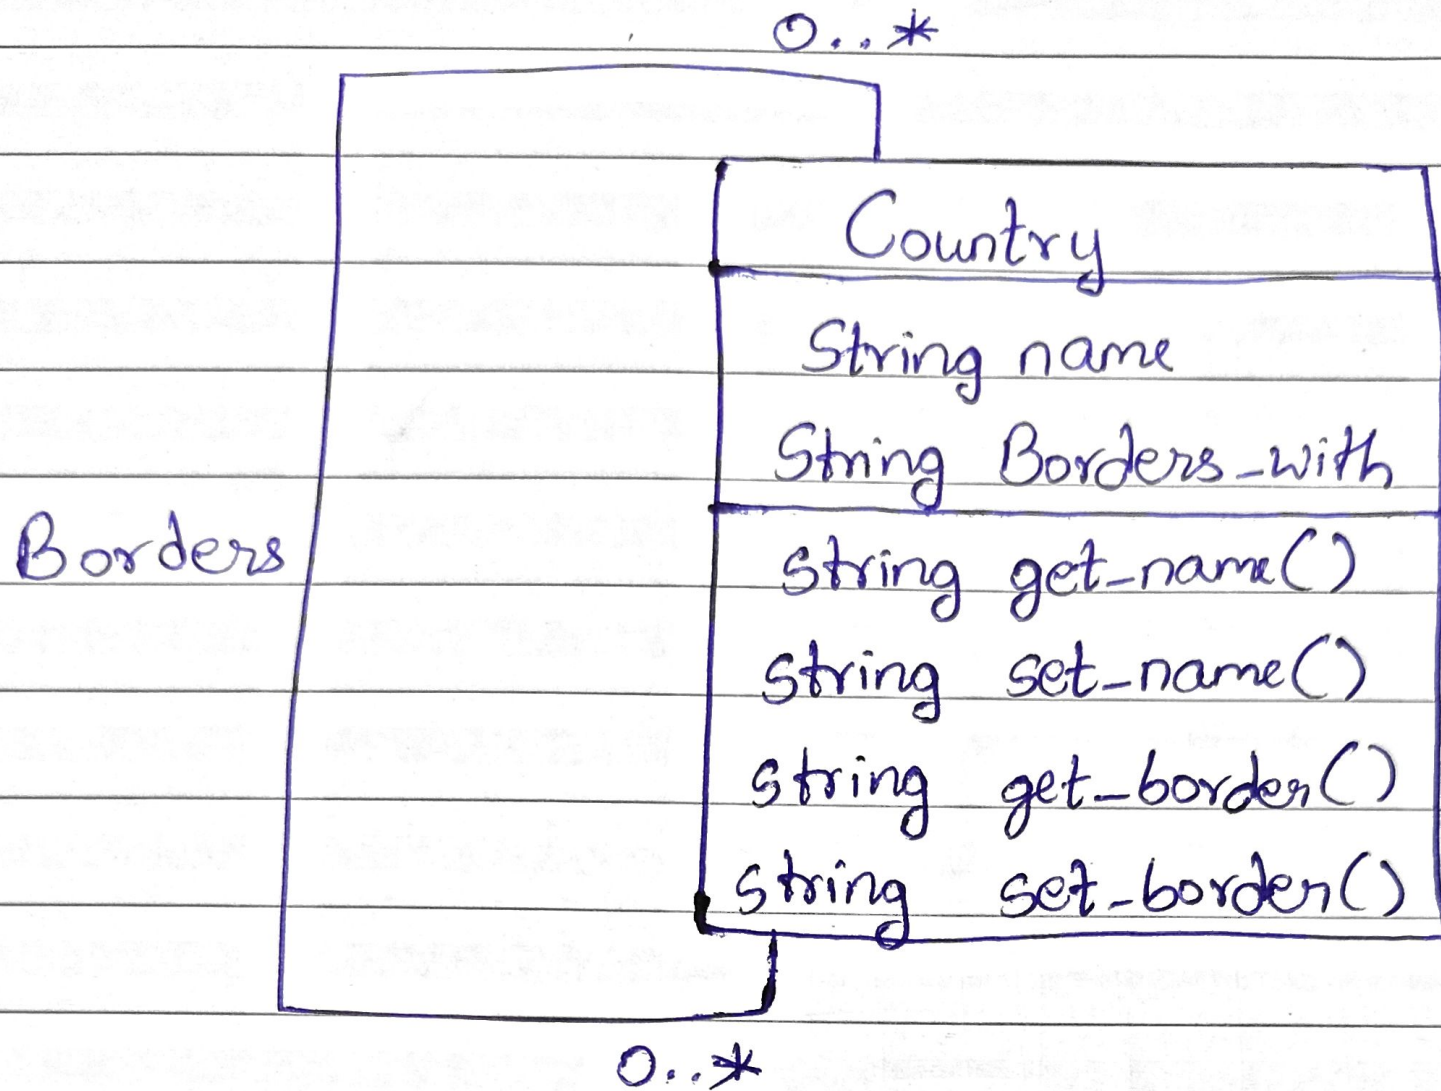 0..*
Country
String name
String Borders_with
Borders
string get_name()
string set_name()
string get_border()
string set_border()
0..*